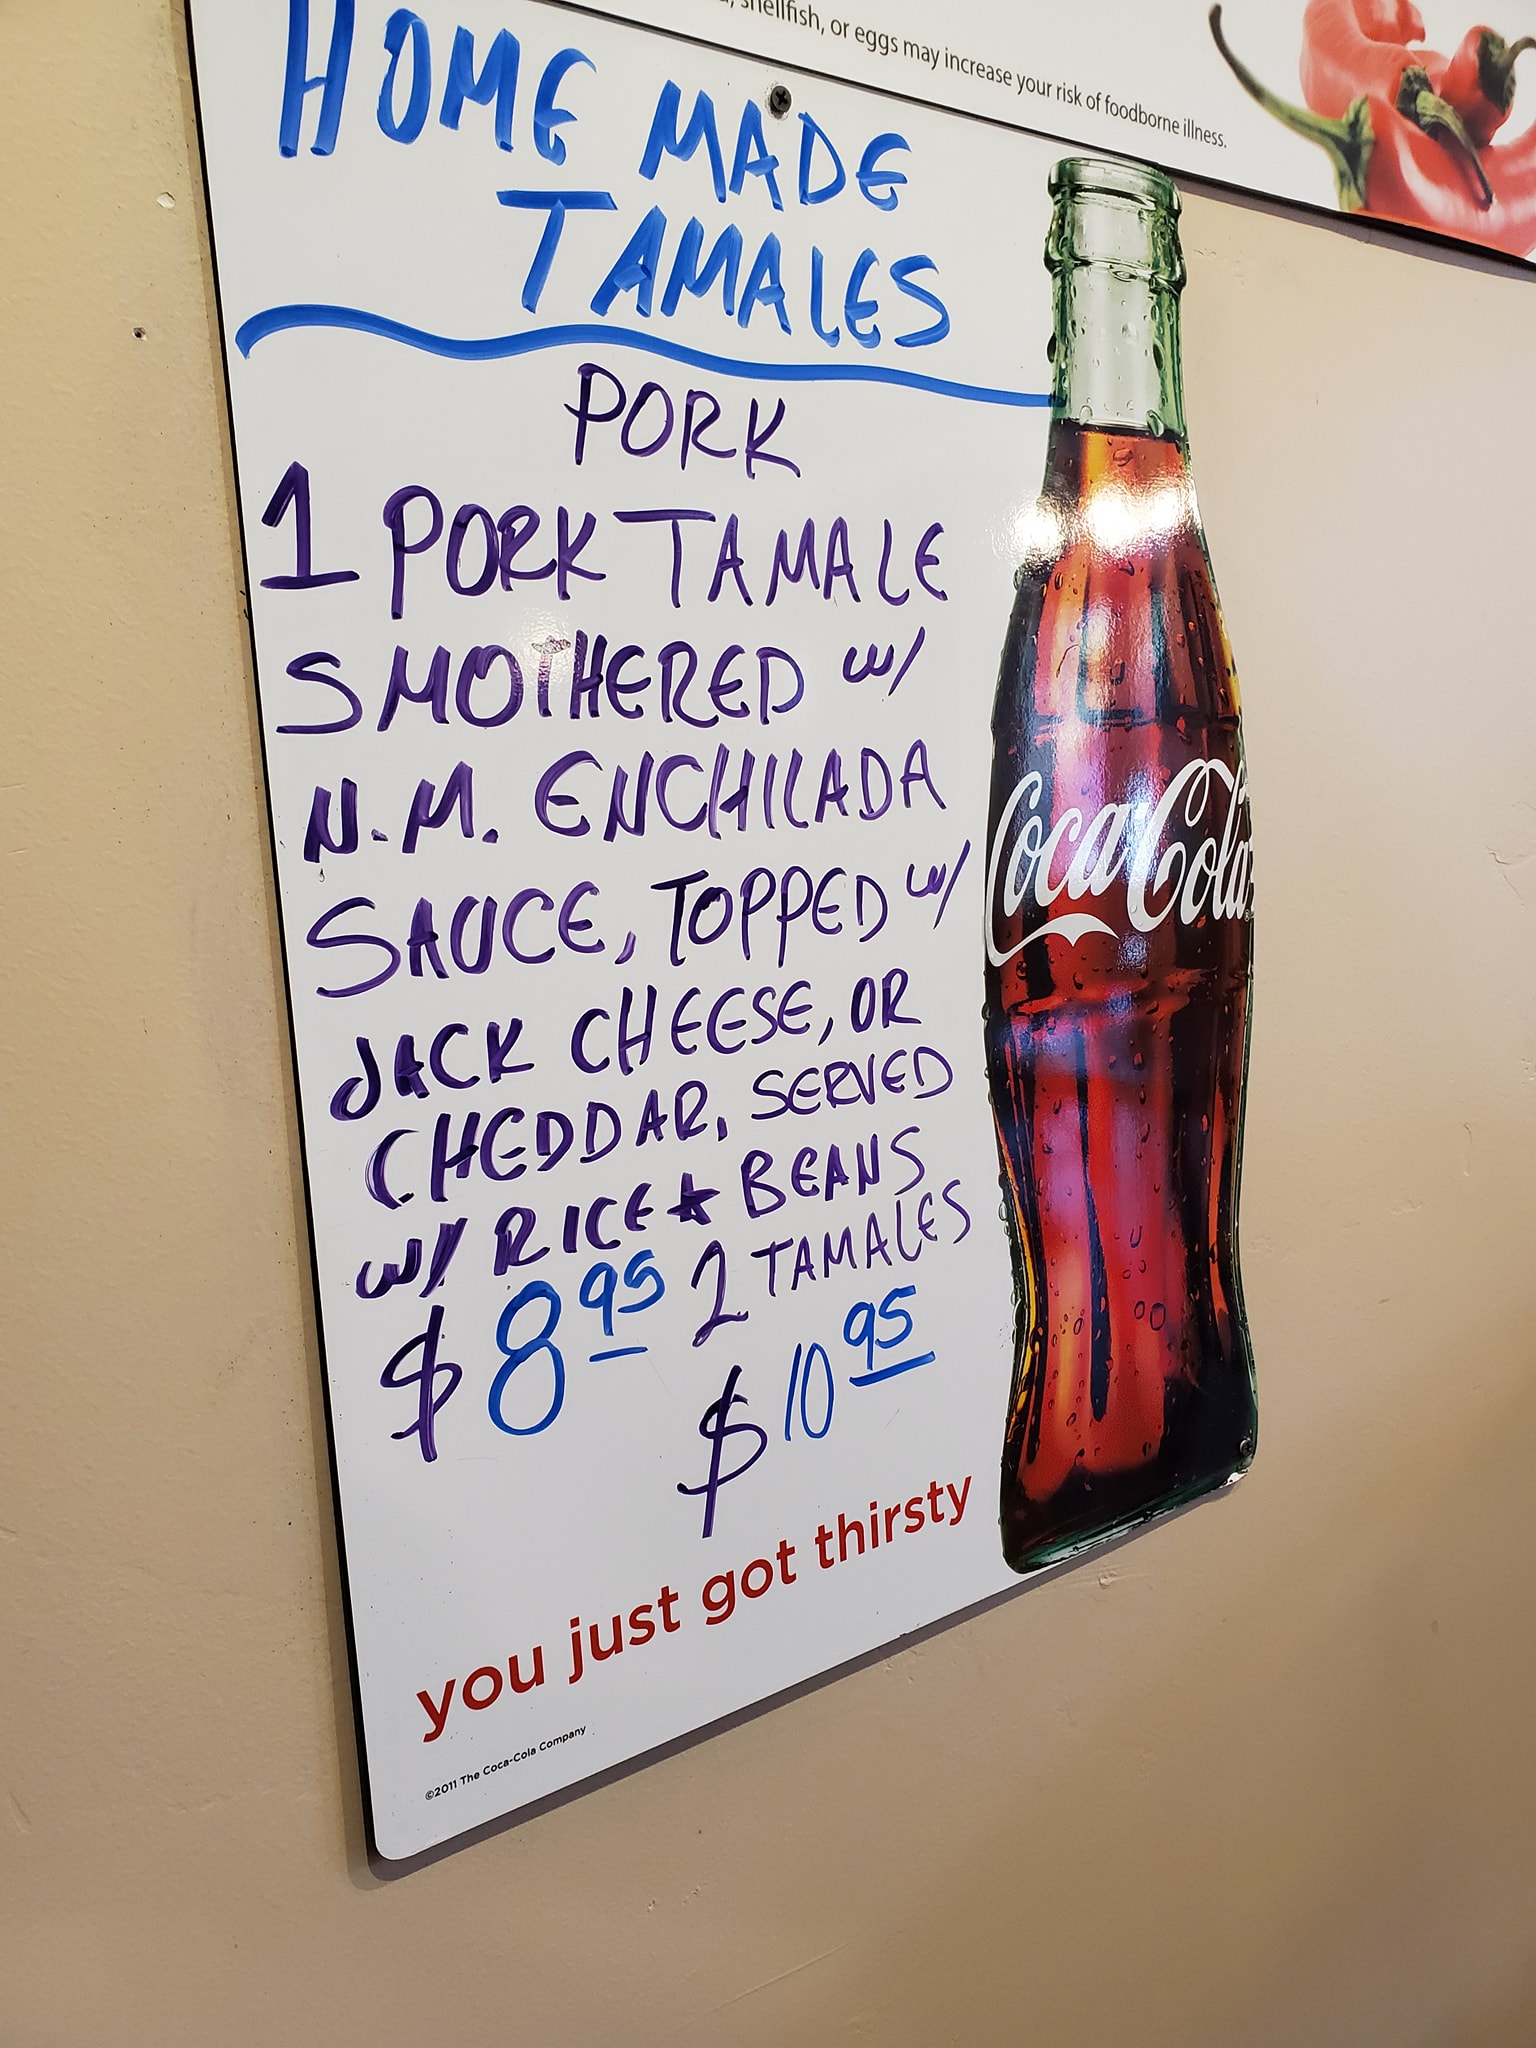 shellfish, or eggs may increase your risk of foodborne illness.
HOME MADE
TAMALES
PORK
1 PORK TAMALE
SMOTHERED w/
N.M. ENCHILADA
SAUCE, TOPPED w/
JACK CHEESE, OR
CHEDDAR, SERVED
w/ RICE & BEANS
$ 8 95 2 TAMALES
$ 10 95
Coca-Cola
you just got thirsty
©2011 The Coca-Cola Company